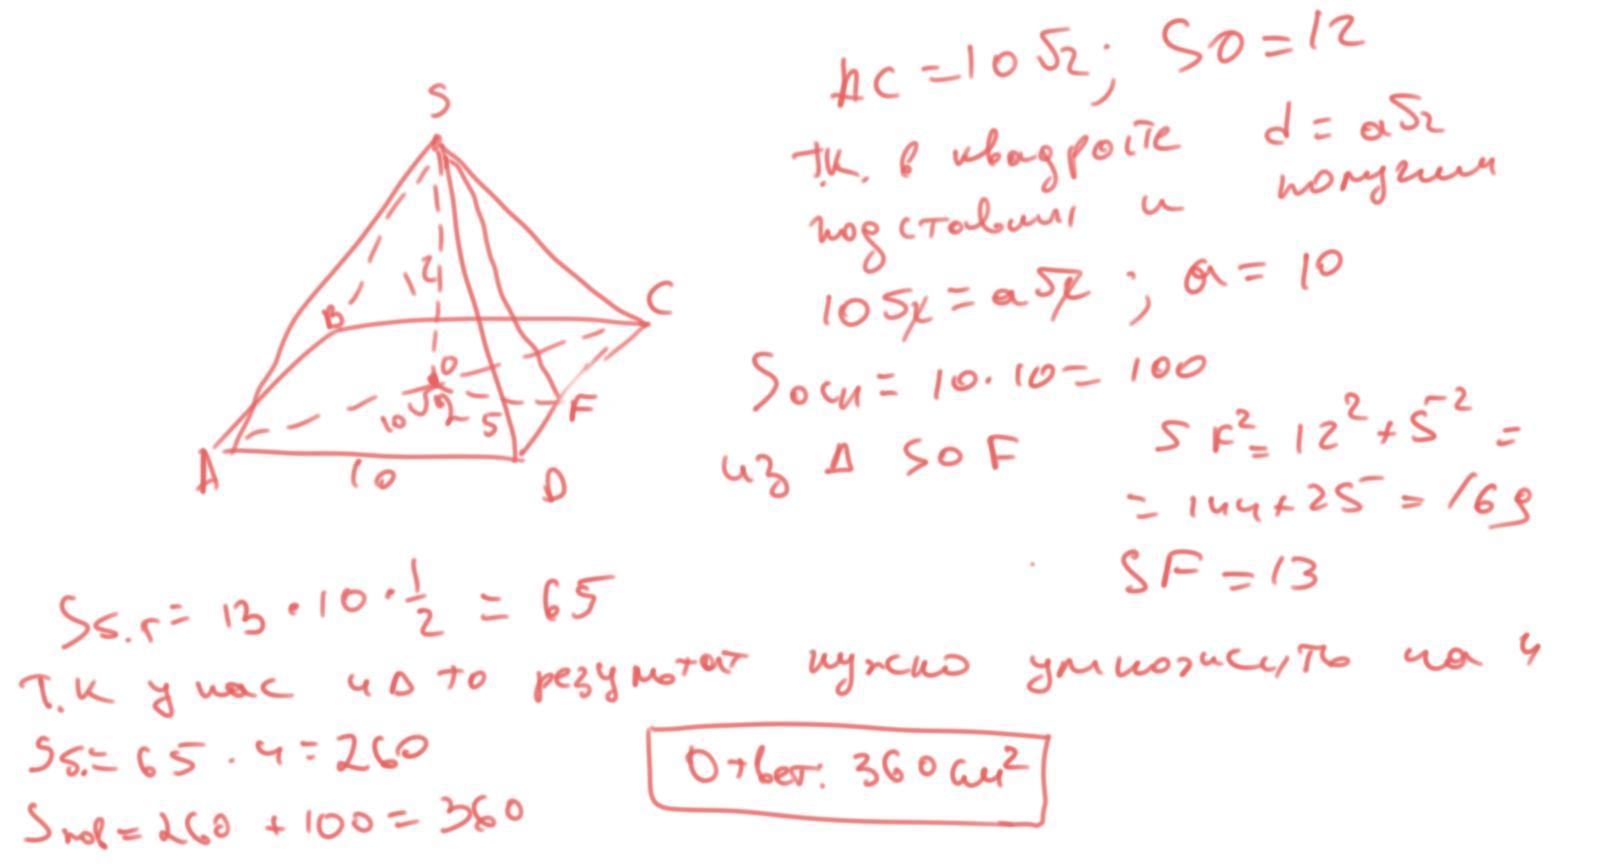 S
12
B
C
O
10√2
5
F
A
10
D
AC = 10√2; SO = 12
т.к. в квадрате d = a√2
подставим и получим
10√2 = a√2 ; a = 10
Sосн = 10·10 = 100
из Δ SOF SF² = 12² + 5² =
= 144 + 25 = 169
SF = 13
Sб.г = 13 · 10 · 1/2 = 65
Т.к у нас 4 Δ то результат нужно умножить на 4
Sб. = 65 · 4 = 260
Sпов = 260 + 100 = 360
Ответ: 360 см²